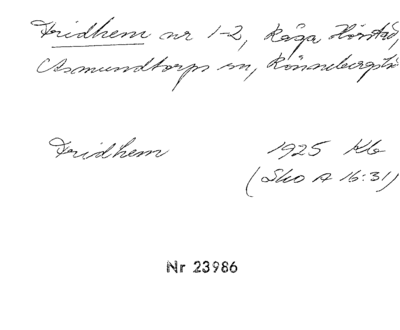 Fridhem nr 1-2, Råga Hörstad,
Asmundtorps sn, Rönnebergs
Fridhem 1925 Kb
(Sko A 16:31)
Nr 23986